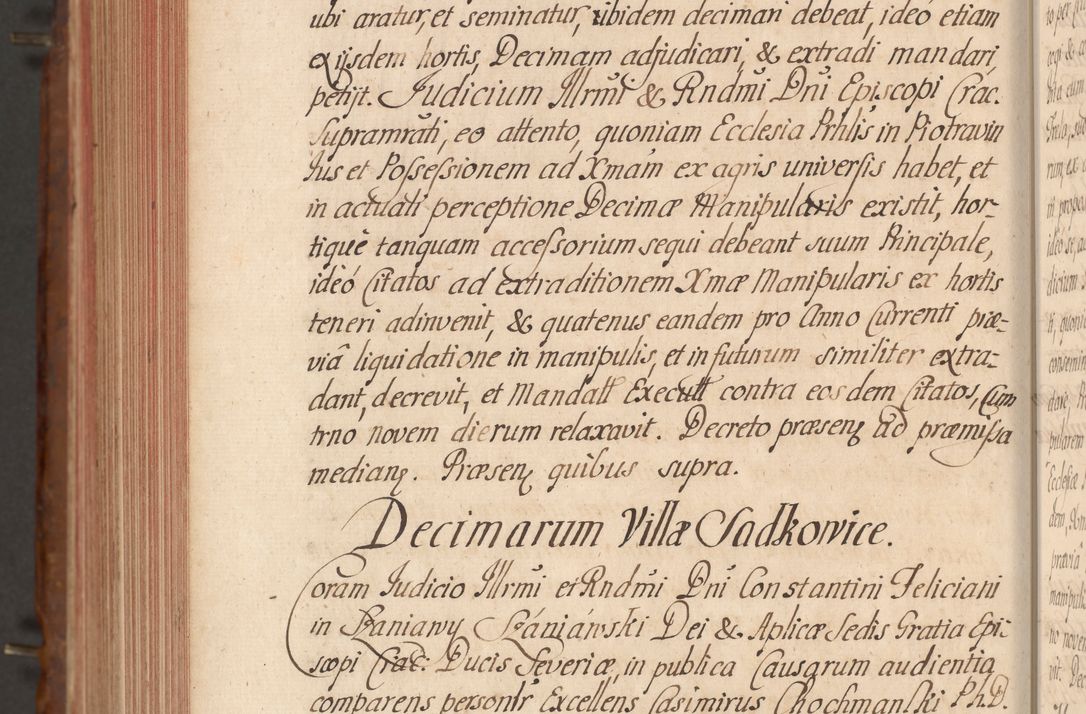 ubi aratur, et seminatur, ubidem decimari debeat, ideó etiam
ex ijsdem hortis, Decimam adjudicari, & extradi mandari,
petijt. Judicium Illrmi & Rndmi Dni Episcopi Crac.
supramrati, eo attento, quoniam Ecclesia Prhlis in Piotravin
Jus et Possessionem ad Xmam ex agris universis habet, et
in actuali perceptione Decimæ Manipularis existit, hor-
tique tanquam accessorium sequi debeant suum Principale,
ideó Citatos ad extraditionem Xmæ Manipularis ex hortis
teneri adinvenit, & quatenus eandem pro Anno Currenti præ-
viâ liquidatione in manipulis, et in futurum similiter extra-
dant, decrevit, et Mandatt Executt contra eosdem Citatos, cum
trno novem dierum relaxavit. Decreto præsenz ad præmissa
medianz. Præsenz quibus supra.
Decimarum Villæ Sadkowice.
Coram Judicio Illrmi et Rndmi Dni Constantini Feliciani
in Szaniawy Szániáwski Dei & Aplicæ Sedis Gratia Epi-
scopi Crac: Ducis Severiæ, in publica Causarum audientia
comparens personlr Excellens Casimirus Chochmanski Ph.D.